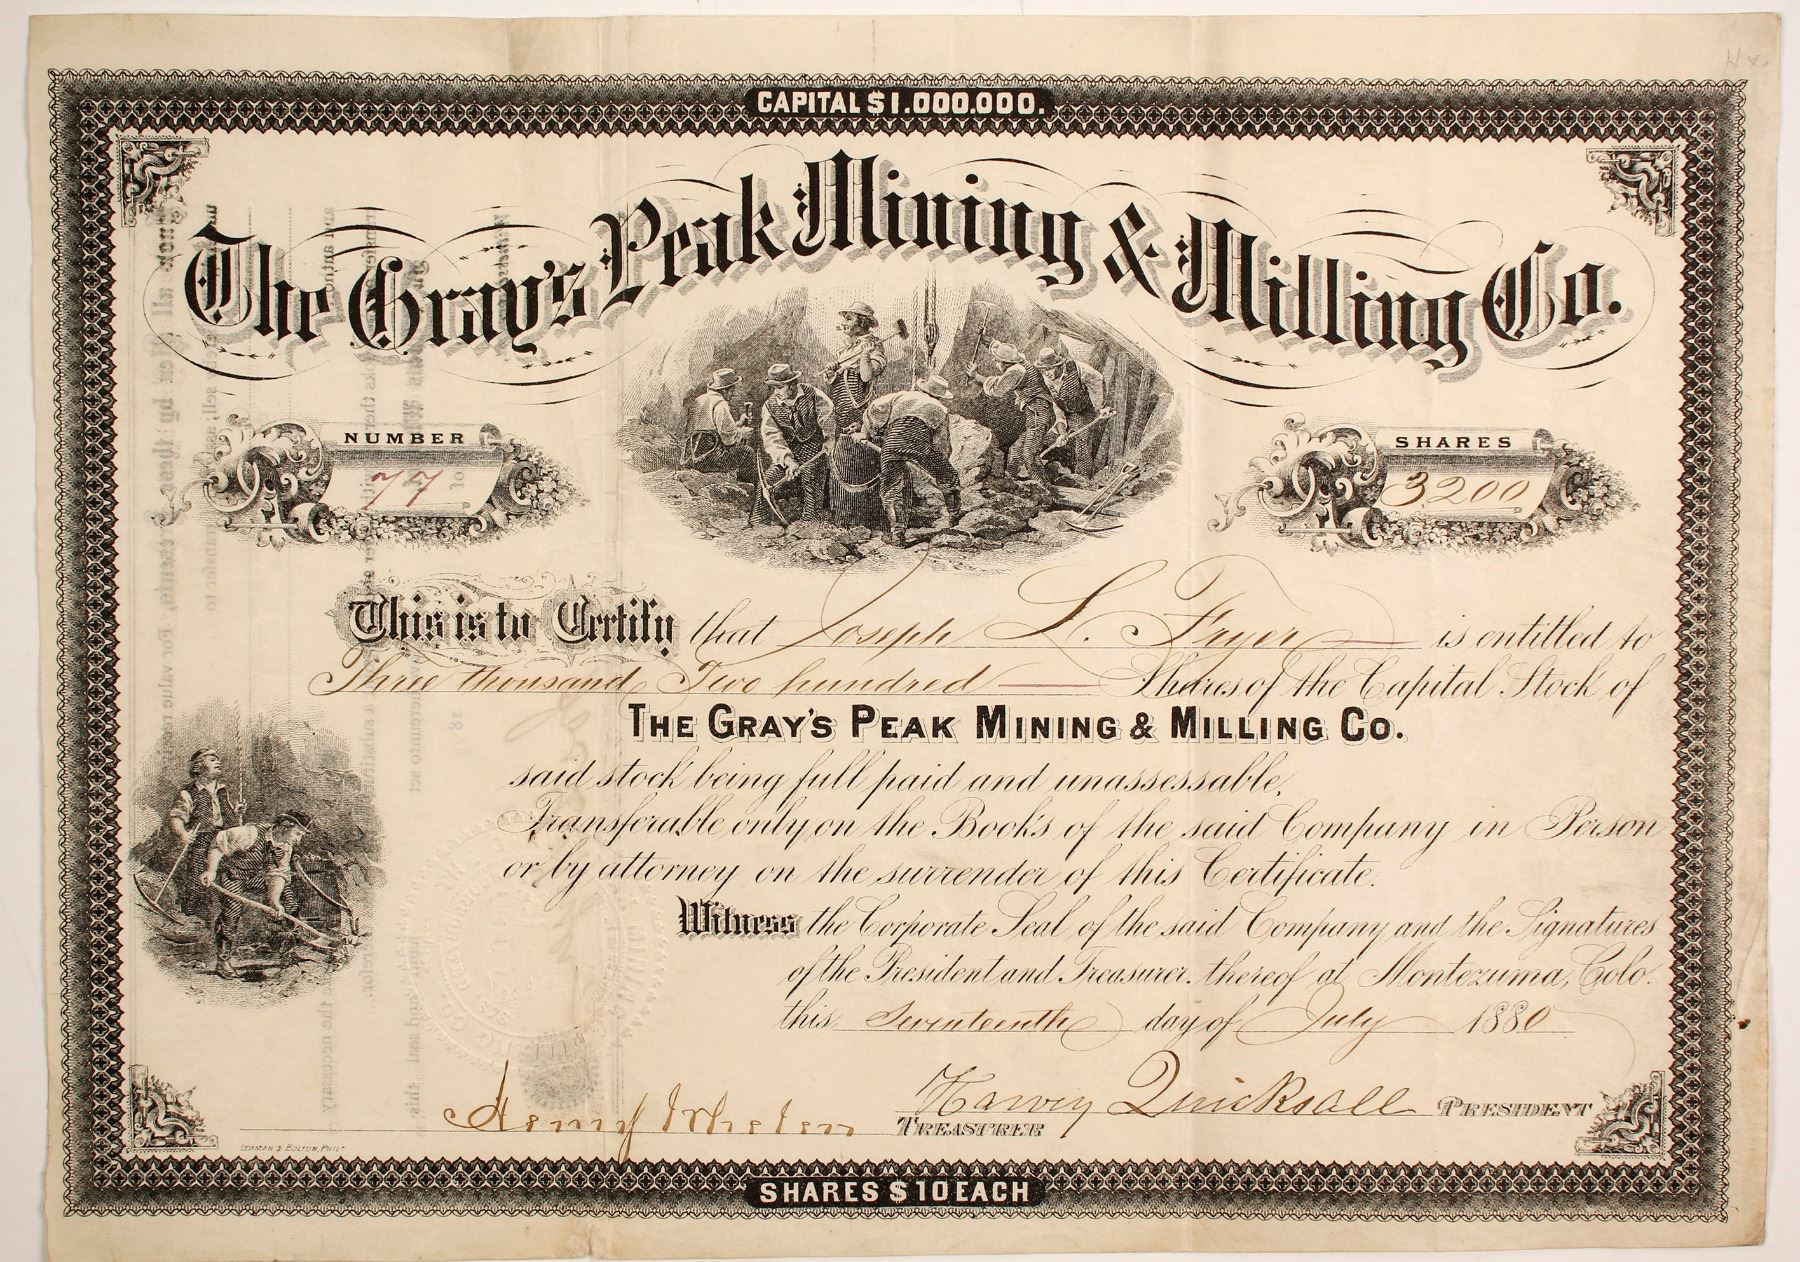 CAPITAL $1.000.000.
The Gray's Peak Mining & Milling Co.
NUMBER
77
SHARES
3200
This is to Certify that Joseph L. Fryer is entitled to
Three thousand Two hundred Shares of the Capital Stock of
THE GRAY'S PEAK MINING & MILLING CO.
said stock being full paid and unassessable,
Transferable only on the Books of the said Company in Person
or by attorney on the surrender of this Certificate.
Witness the Corporate Seal of the said Company and the Signatures
of the President and Treasurer thereof at Montezuma, Colo.
this Seventeenth day of July 1880
Harvey Quicksall PRESIDENT
Henry Whelen TREASURER
LEHMAN & BOLTON, PHILA
SHARES $10 EACH